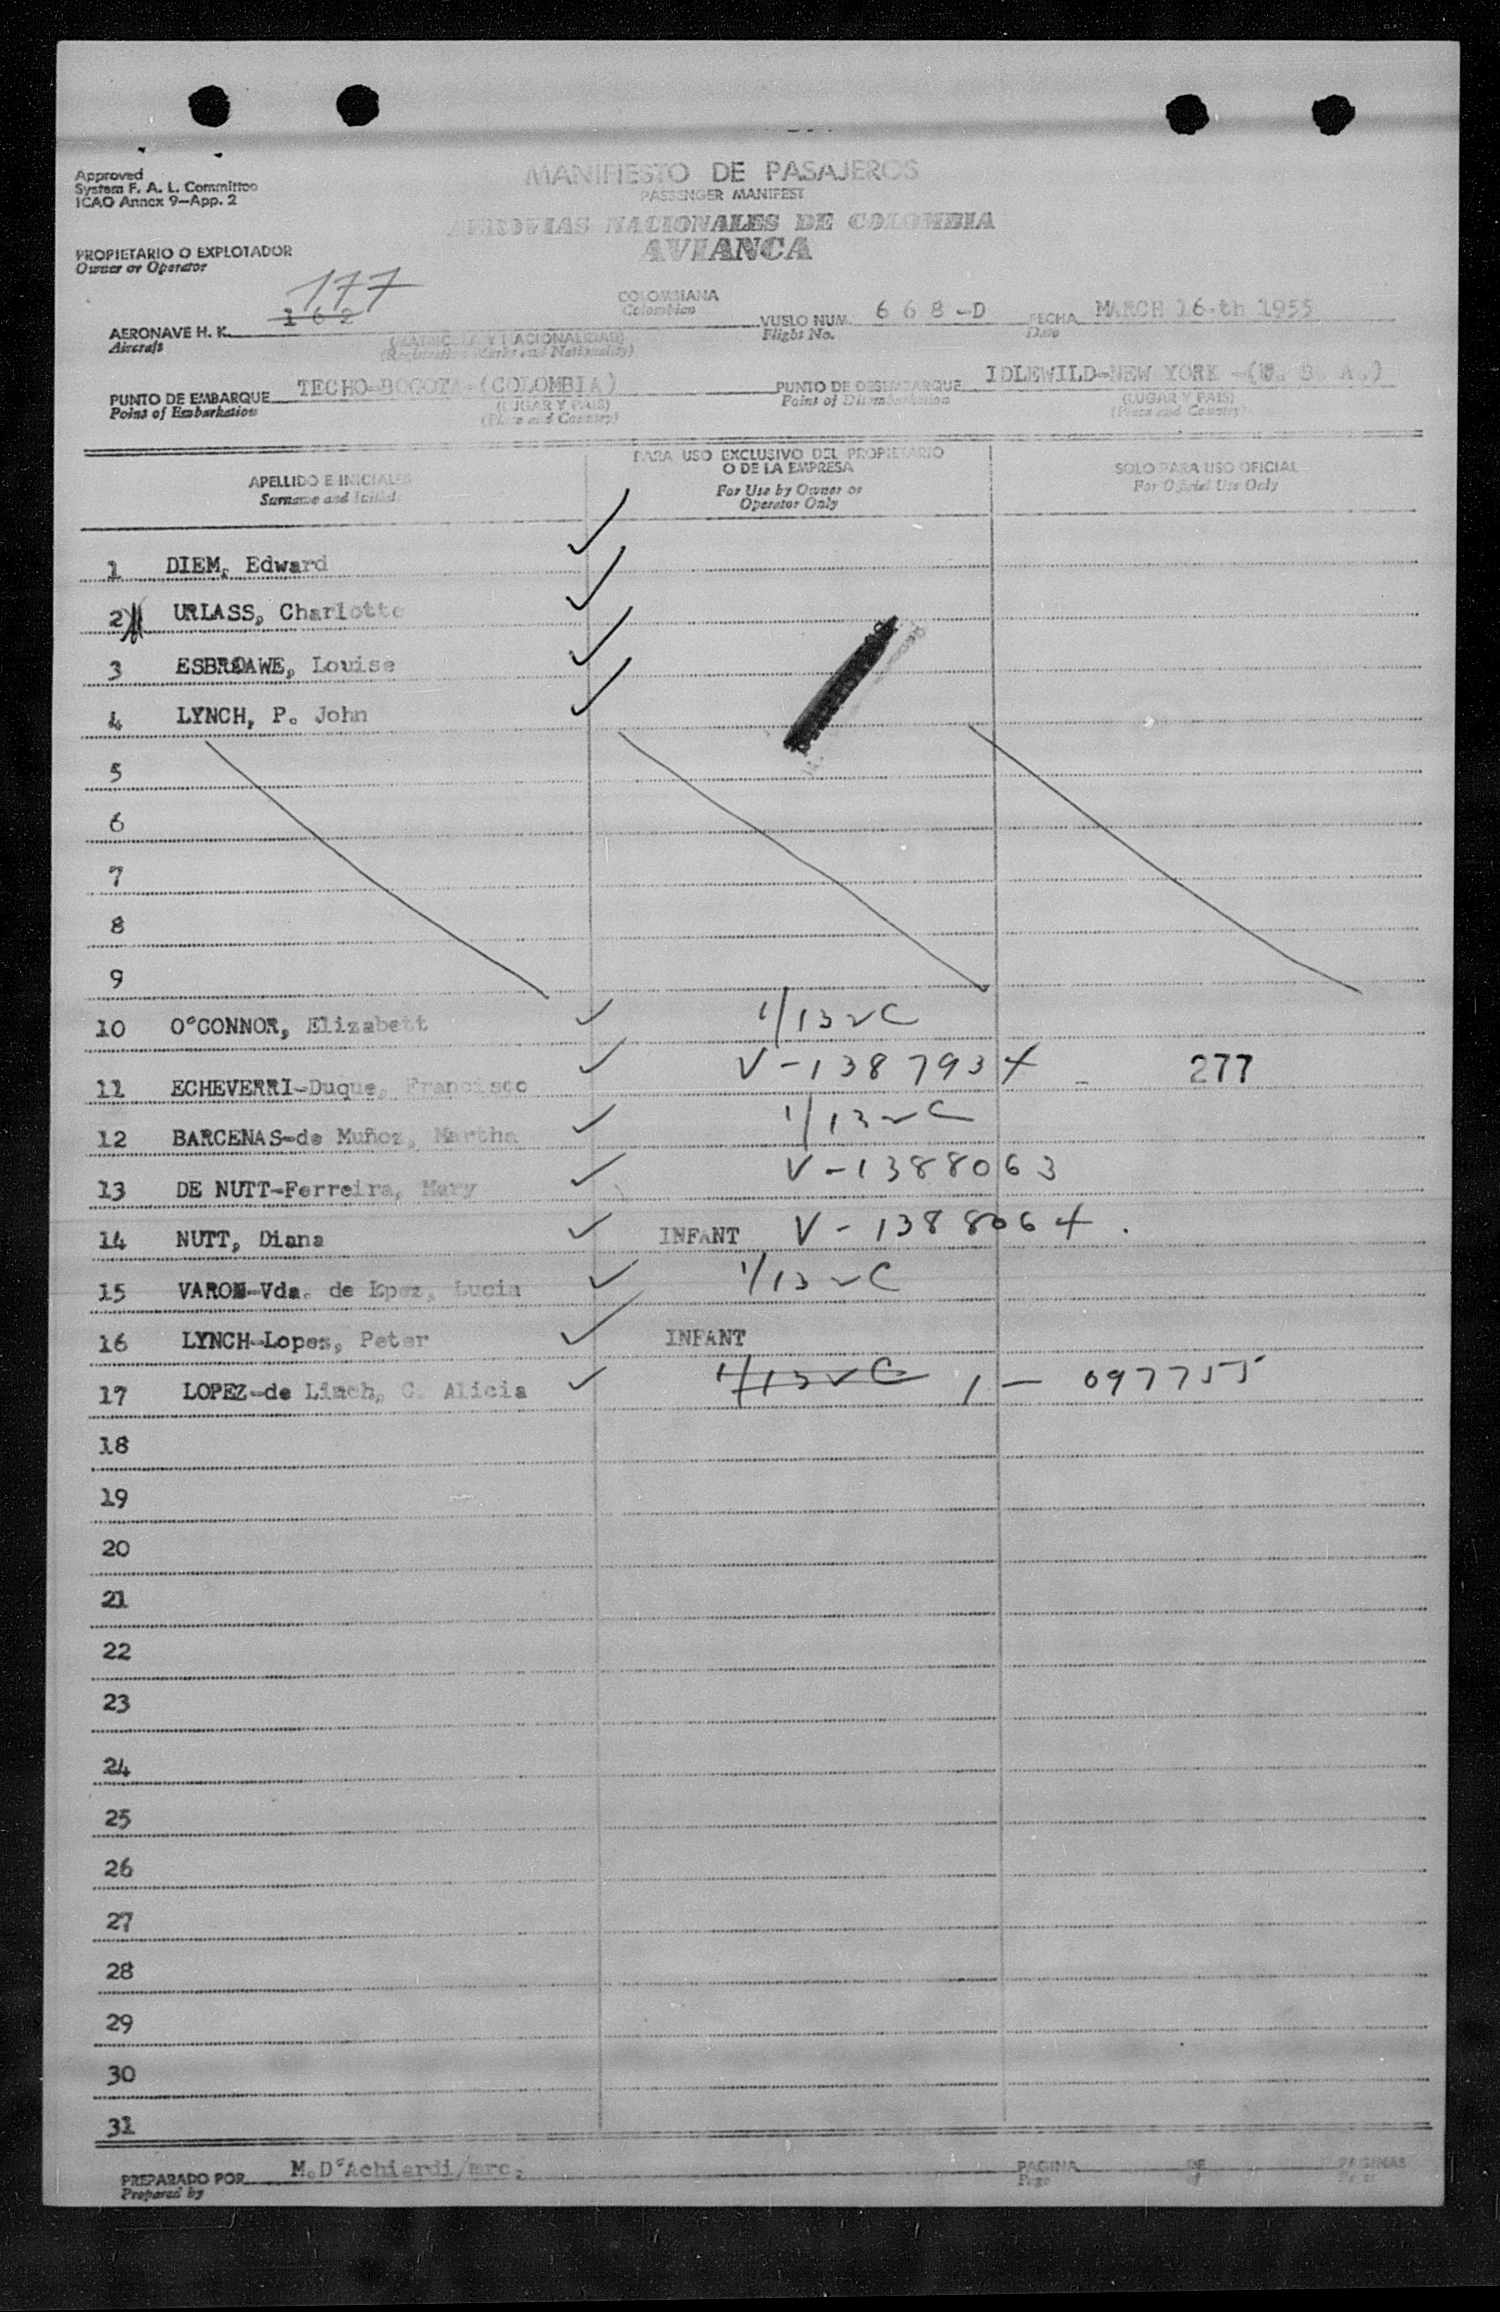 Approved
System F. A. L. Committee
ICAO Annex 9—App. 2
MANIFIESTO DE PASAJEROS
PASSENGER MANIFEST
AEROVIAS NACIONALES DE COLOMBIA
AVIANCA
PROPIETARIO O EXPLOTADOR
Owner or Operator
177
COLOMBIANA
Colombian
AERONAVE H. K. 162
Aircraft
(MATRICULA Y NACIONALIDAD)
(Registration Marks and Nationality)
VUELO NUM. 6 6 8 -D
Flight No.
FECHA MARCH 16-th 1955
Date
PUNTO DE EMBARQUE TECHO-BOGOTA-(COLOMBIA)
Point of Embarkation
(LUGAR Y PAIS)
(Place and Country)
PUNTO DE DESEMBARQUE IDLEWILD-NEW YORK -(U. S. A.)
Point of Disembarkation
(LUGAR Y PAIS)
(Place and Country)
APELLIDO E INICIALES
Surname and Initials
PARA USO EXCLUSIVO DEL PROPIETARIO
O DE LA EMPRESA
For Use by Owner or
Operator Only
SOLO PARA USO OFICIAL
For Official Use Only
1 DIEM, Edward
2 URLASS, Charlotte
3 ESBROAWE, Louise
4 LYNCH, P. John
5
6
7
8
9
10 O'CONNOR, Elizabett
11 ECHEVERRI-Duque, Francisco V-1387934 - 277
12 BARCENAS-de Muñoz, Martha
13 DE NUTT-Ferreira, Mary V-1388063
14 NUTT, Diana INFANT V-1388064.
15 VARON-Vda. de Lpez, Lucia
16 LYNCH-Lopez, Peter INFANT
17 LOPEZ-de Linch, C. Alicia 1 - 097755
18
19
20
21
22
23
24
25
26
27
28
29
30
31
PREPARADO POR M.D'Achiardi/mrc.
Prepared by
PAGINA DE PAGINAS
Page of Pages